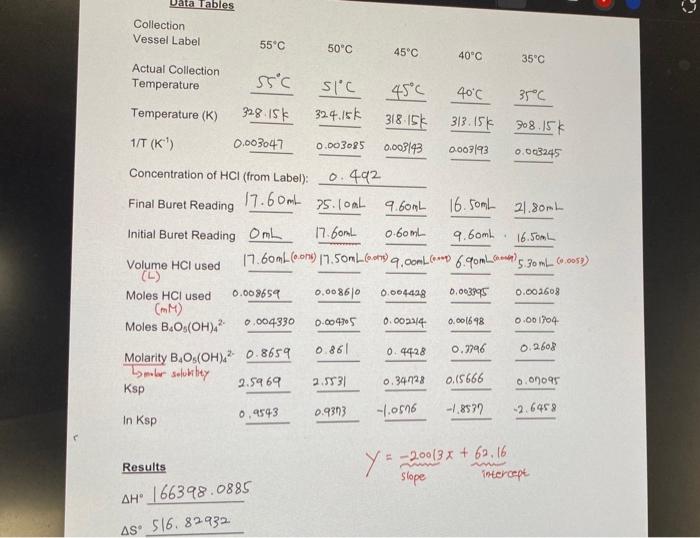 Data Tables
Collection
Vessel Label 55°C 50°C 45°C 40°C 35°C
Actual Collection
Temperature 55°C 51°C 45°C 40°C 35°C
Temperature (K) 328.15k 324.15k 318.15k 313.15k 308.15k
1/T (K⁻¹) 0.003047 0.003085 0.003143 0.003193 0.003245
Concentration of HCl (from Label): 0.492
Final Buret Reading 17.60mL 35.10mL 9.60mL 16.50mL 21.80mL
Initial Buret Reading 0mL 17.60mL 0.60mL 9.60mL 16.50mL
Volume HCl used 17.60mL 17.50mL 9.00mL 6.90mL 5.30mL (0.0053)
(L)
Moles HCl used 0.008659 0.008610 0.004428 0.003395 0.002608
(mM)
Moles B₄O₅(OH)₄²⁻ 0.004330 0.004305 0.002214 0.001698 0.001304
Molarity B₄O₅(OH)₄²⁻ 0.8659 0.861 0.4428 0.3396 0.2608
↳molar solubility
Ksp 2.5969 2.5531 0.34728 0.15666 0.07095
ln Ksp 0.9543 0.9373 -1.0576 -1.8537 -2.6458
y = -20013x + 62.16
slope intercept
Results
ΔH° 166398.0885
ΔS° 516.82932